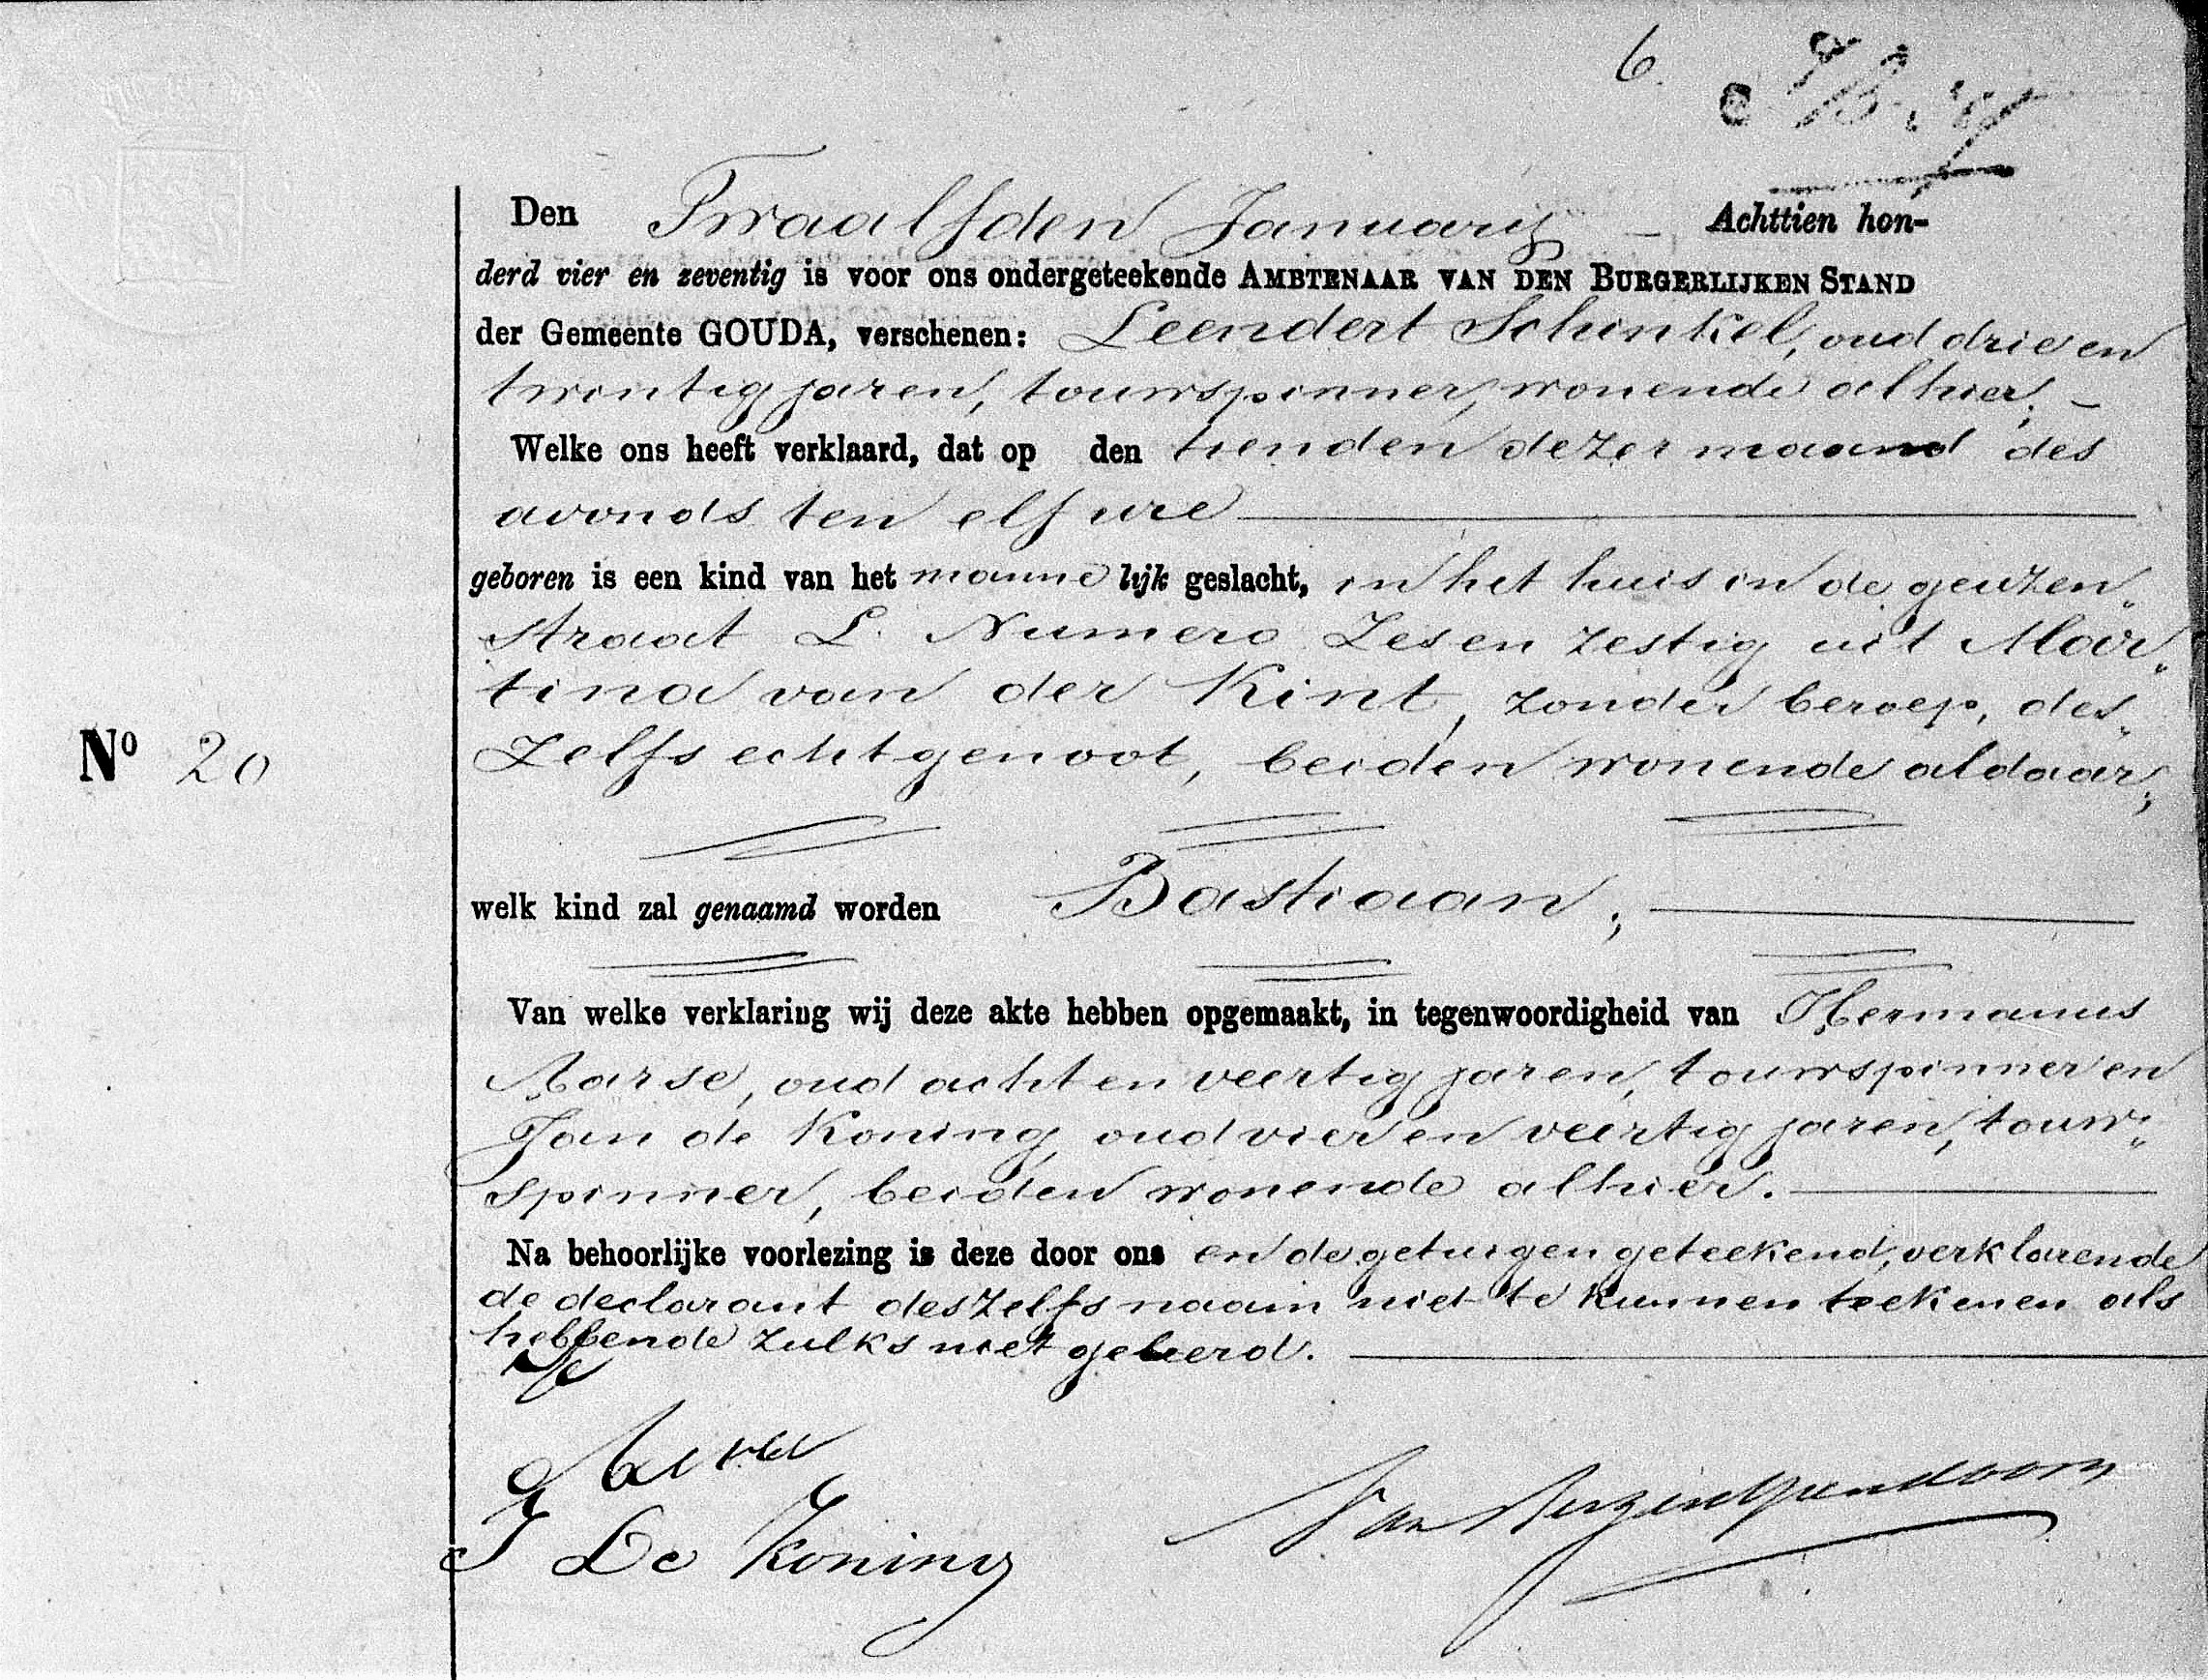 6.
Den Twaalfden Januarij – Achttien hon-
derd vier en zeventig is voor ons ondergeteekende AMBTENAAR VAN DEN BURGERLIJKEN STAND
der Gemeente GOUDA, verschenen: Leendert Schinkel, oud drie en
twintig jaren, touwspinner, wonende alhier; –
Welke ons heeft verklaard, dat op den tienden dezer maand des
avonds ten elf ure
geboren is een kind van het manne lijk geslacht, in het huis in de geuzen„
straat L. Numero Zes en zestig uit Mar„
tina van der Kint, zonder beroep, des„
Zelfs echtgenoot, beiden wonende aldaar;
Nº 20
welk kind zal genaamd worden Bastiaan;
Van welke verklaring wij deze akte hebben opgemaakt, in tegenwoordigheid van Hermanus
Aarse, oud acht en veertig jaren, touwspinner en
Jan de Koning, oud vier en veertig jaren, touw„
spinner, beiden wonende alhier.
Na behoorlijke voorlezing is deze door ons en de getuigen geteekend, verklarende
de declarant deszelfs naam niet te kunnen teekenen als
hebbende zulks niet geleerd.
J De Koning